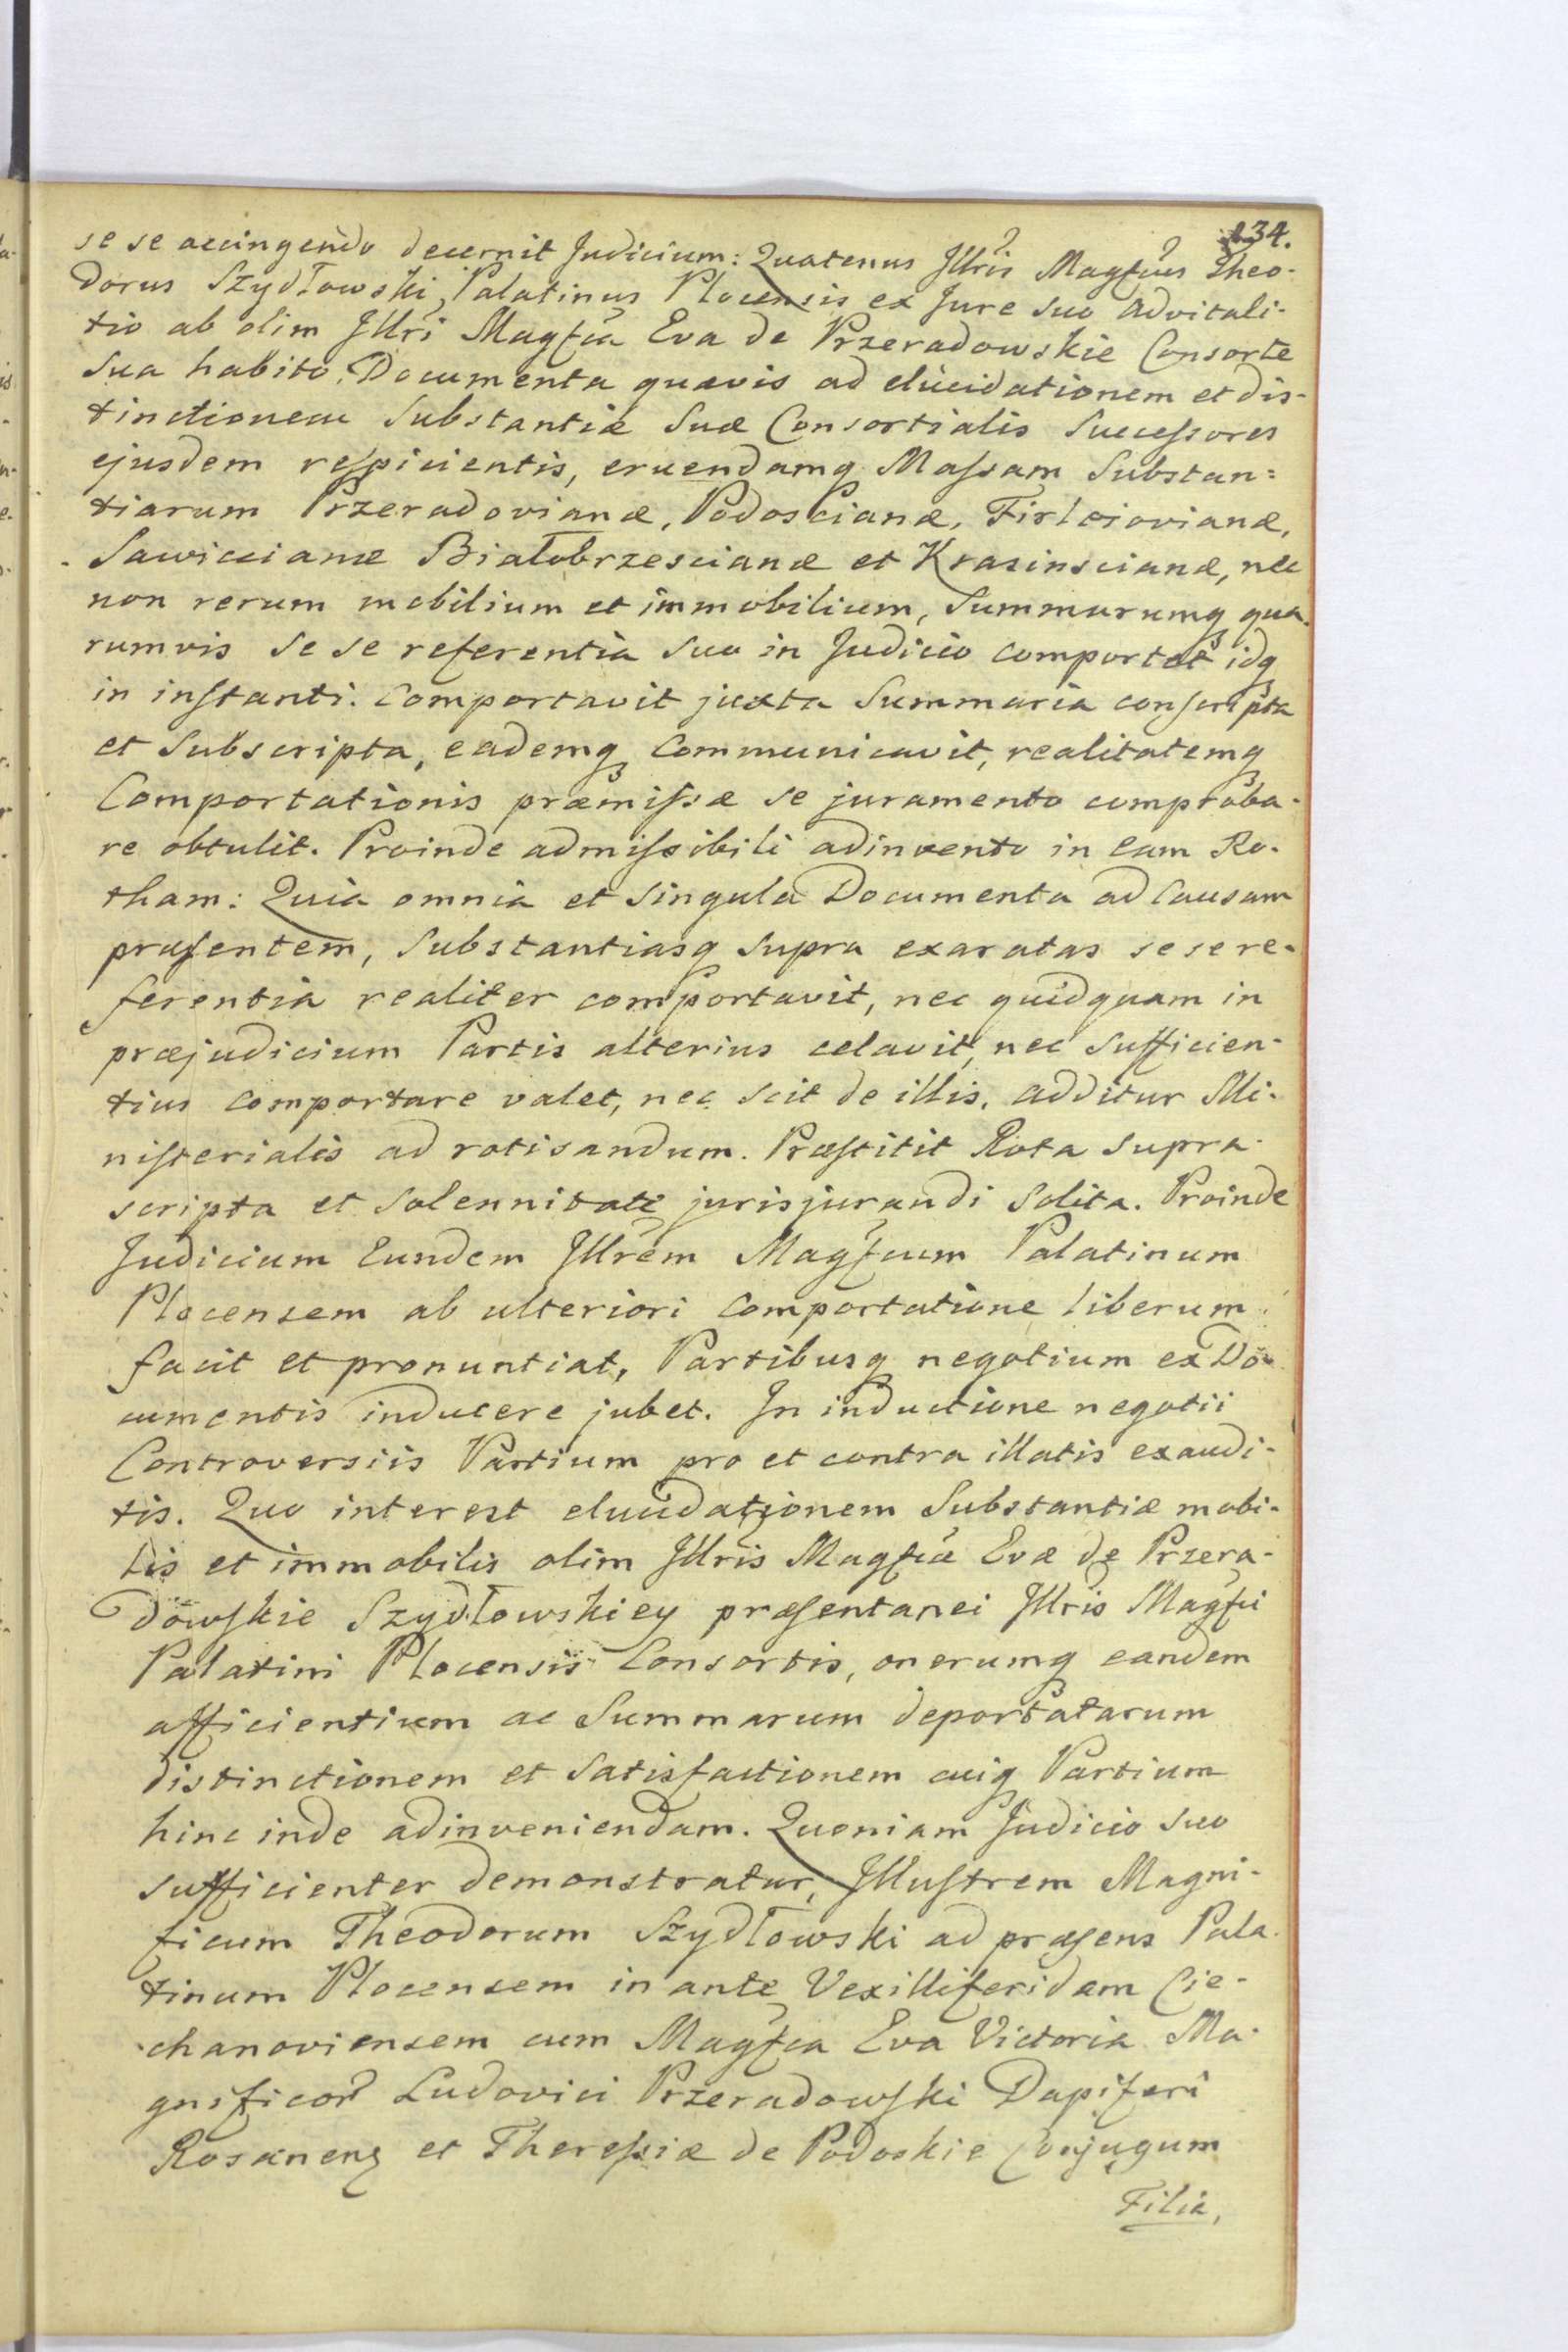 134.
se se accingendo decernit Judicium: Quatenus Jllris Magfcus Theo-
dorus Szydłowski, Palatinus Plocensis ex Jure suo advitali-
tio ab olim Jllri Magfca Eva de Przeradowskie Consorte
sua habito, Documenta quævis ad elucidationem et dis-
tinctionem Substantiæ Suæ Consortialis Successores
ejusdem respicientis, eruendamq Massam Substan=
tiarum Przeradovianæ, Podoscianæ, Firleiovianæ,
Sawiccianæ Białobrzescianæ et Krasinscianæ, nec
non rerum mobilium et immobilium, Summarumq qua-
rumvis se se referentia suo in Judicio comportet idq
in instanti. Comportavit juxta Summaria conscripta
et Subscripta, eademq communicavit, realitatemq
Comportationis præmissæ se juramento comproba-
re obtulit. Proinde admissibili adinvento in eam Ro-
tham: Quia omnia et singula Documenta ad Causam
præsentem, Substantiasq supra exaratas se se re-
ferentia realiter comportavit, nec quidquam in
præjudicium Partis alterius celavit, nec sufficien-
tius comportare valet, nec scit de illis, additur Mi-
nisterialis ad rotisandum. Præstitit Rota supra-
scripta et solennitate jurisjurandi solita. Proinde
Judicium Eundem Jllrem Magfcum Palatinum
Plocensem ab ulteriori comportatione liberum
facit et pronuntiat, Partibusq negotium ex Do-
cumentis inducere jubet. In inductione negotii
Controversiis Partium pro et contra illatis exaudi-
tis. Quo interest elucidationem Substantiæ mobi-
lis et immobilis olim Jllris Magfcæ Evæ de Przera-
dowskie Szydłowskiey præsentanei Jllris Magfci
Palatini Plocensis Consortis, onerumq eandem
afficientium ac Summarum deportatarum
distinctionem et satisfactionem cuiq Partium
hinc inde adinveniendam. Quoniam Judicio suo
sufficienter demonstratur, Jllustrem Magni-
ficum Theodorum Szydłowski ad præsens Pala-
tinum Plocensem in ante Vexilliferidam Cie-
chanoviensem cum Magfca Eva Victoria Ma-
gnificor Ludovici Przeradowski Dapiferi
Rosanens et Theresiæ de Podoskie Conjugum
Filia,